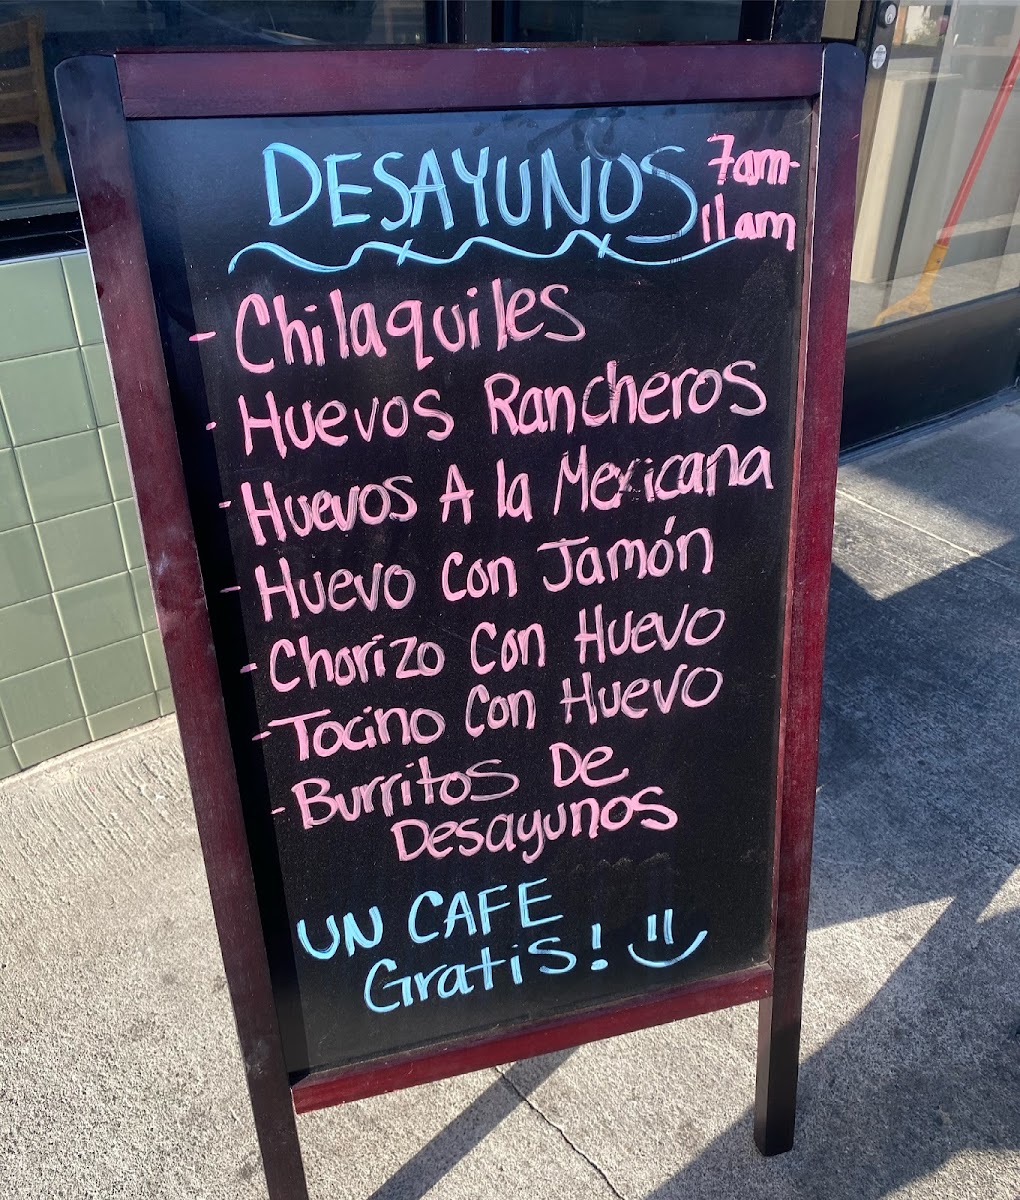 DESAYUNOS 7am-
11am
- Chilaquiles
- Huevos Rancheros
- Huevos A la Mexicana
- Huevo Con Jamón
- Chorizo Con Huevo
- Tocino Con Huevo
- Burritos De
Desayunos
UN CAFE
Gratis!